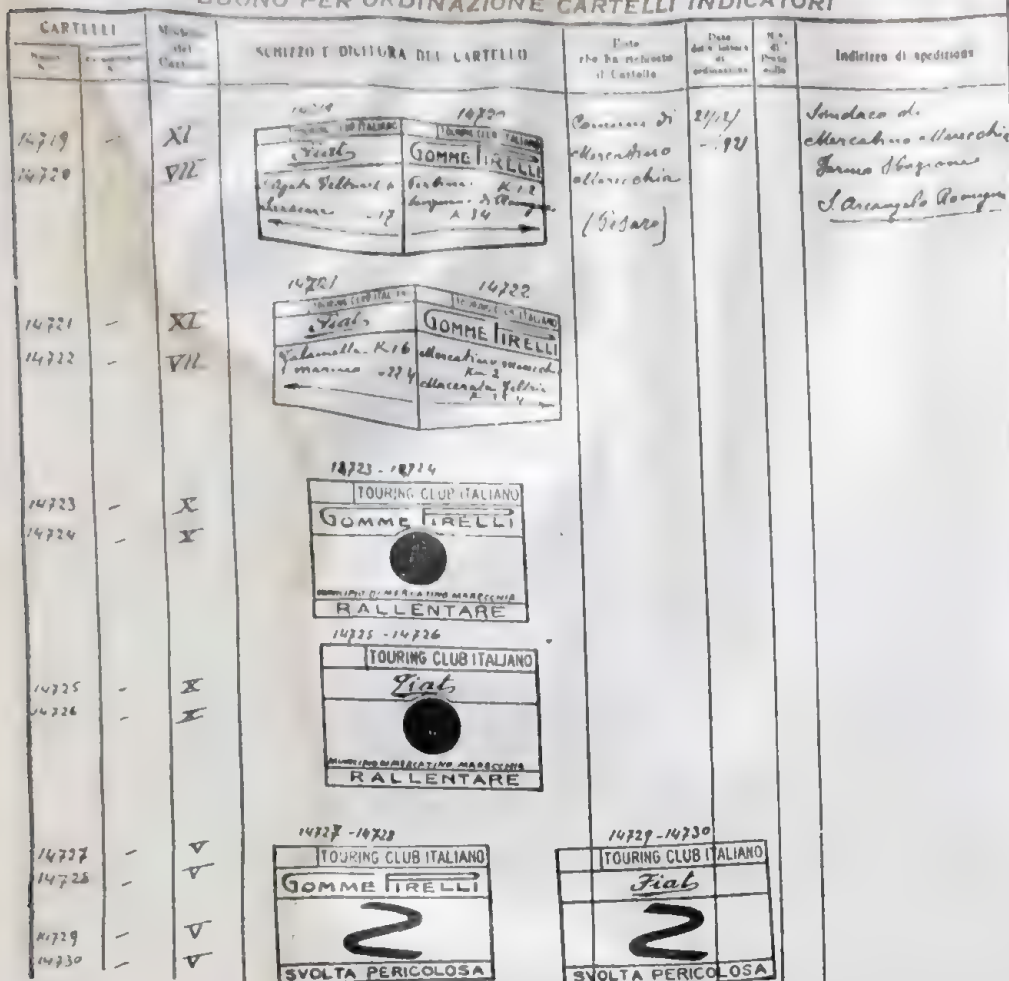 BUONO PER ORDINAZIONE CARTELLI INDICATORI
CARTELLI
SCHIZZO E DICITURA DEL CARTELLO
che ha richiesto
il Cartello
di
di
Indirizzo di spedizione
14719 - XI
14720 - VII
14719 14720
TOURING CLUB ITALIANO
TOURING CLUB ITALIANO
Fiat
GOMME PIRELLI
Comune di
Mercatino
Marecchia
(Pesaro)
21/12/
Sindaco di
Mercatino Marecchia
S. Arcangelo Romagna
14721 - XI
14722 - VII
14721 14722
TOURING CLUB ITALIANO
TOURING CLUB ITALIANO
Fiat
GOMME PIRELLI
Talamello K. 1 6
Marino 22 4
Mercatino
K 2
Macerata Feltria
14723 - X
14724 - X
18723 - 18724
TOURING CLUB ITALIANO
GOMME PIRELLI
MUNICIPIO DI MERCATINO MARECCHIA
RALLENTARE
14725 - X
14726 - X
14725 - 14726
TOURING CLUB ITALIANO
Fiat
MUNICIPIO DI MERCATINO MARECCHIA
RALLENTARE
14727 - V
14728 - V
14729 - V
14730 - V
14727 - 14728
TOURING CLUB ITALIANO
GOMME PIRELLI
SVOLTA PERICOLOSA
14729 - 14730
TOURING CLUB ITALIANO
Fiat
SVOLTA PERICOLOSA